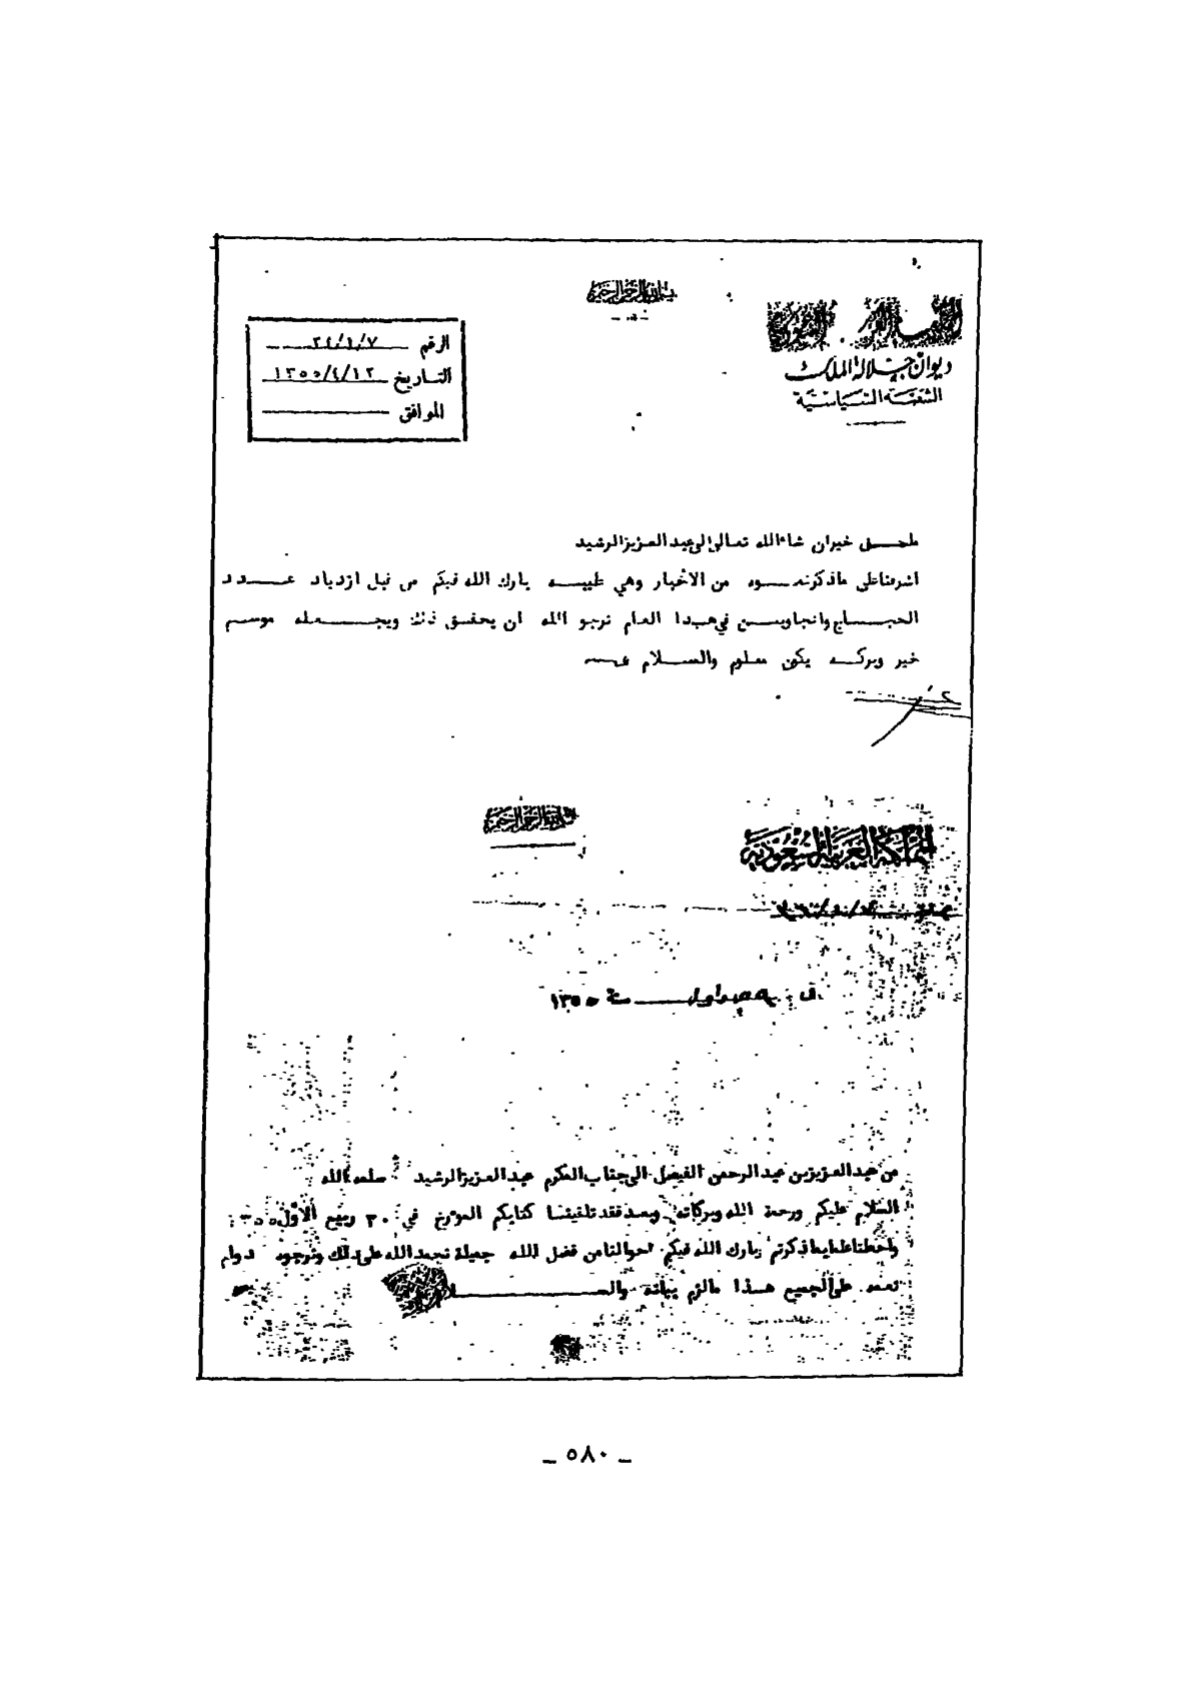 بسم الله الرحمن الرحيم
ديوان جلالة الملك
الشعبة السياسية
الرقم ٢٤/١/٧
التاريخ ١٣٥٥/٤/١٢
الموافق
ملحق خيران شاء الله تعالى الى عبد العزيز الرشيد
اشرفنا على ماذكرته من الأخبار وهي طيبه بارك الله فيكم من قبل ازدياد عدد
الحجاج والجاويين في هذا العام نرجو الله ان يحقق ذلك ويجعله موسم
خير وبركه يكون معلوم والسلام
بسم الله الرحمن الرحيم
المملكة العربية السعودية
سنة ١٣٥٥
من عبد العزيز بن عبد الرحمن الفيصل الى جناب المكرم عبد العزيز الرشيد سلمه الله
السلام عليكم ورحمة الله وبركاته وبعد فقد تلقينا كتابكم المؤرخ في ٢٠ ربيع الأول
واحطنا علما بما ذكرتم بارك الله فيكم احوالنا من فضل الله جميلة نحمد الله على ذلك ونرجوه دوام
نعمه على الجميع هذا مالزم بيانه والسلام
ـ ٥٨٠ ـ